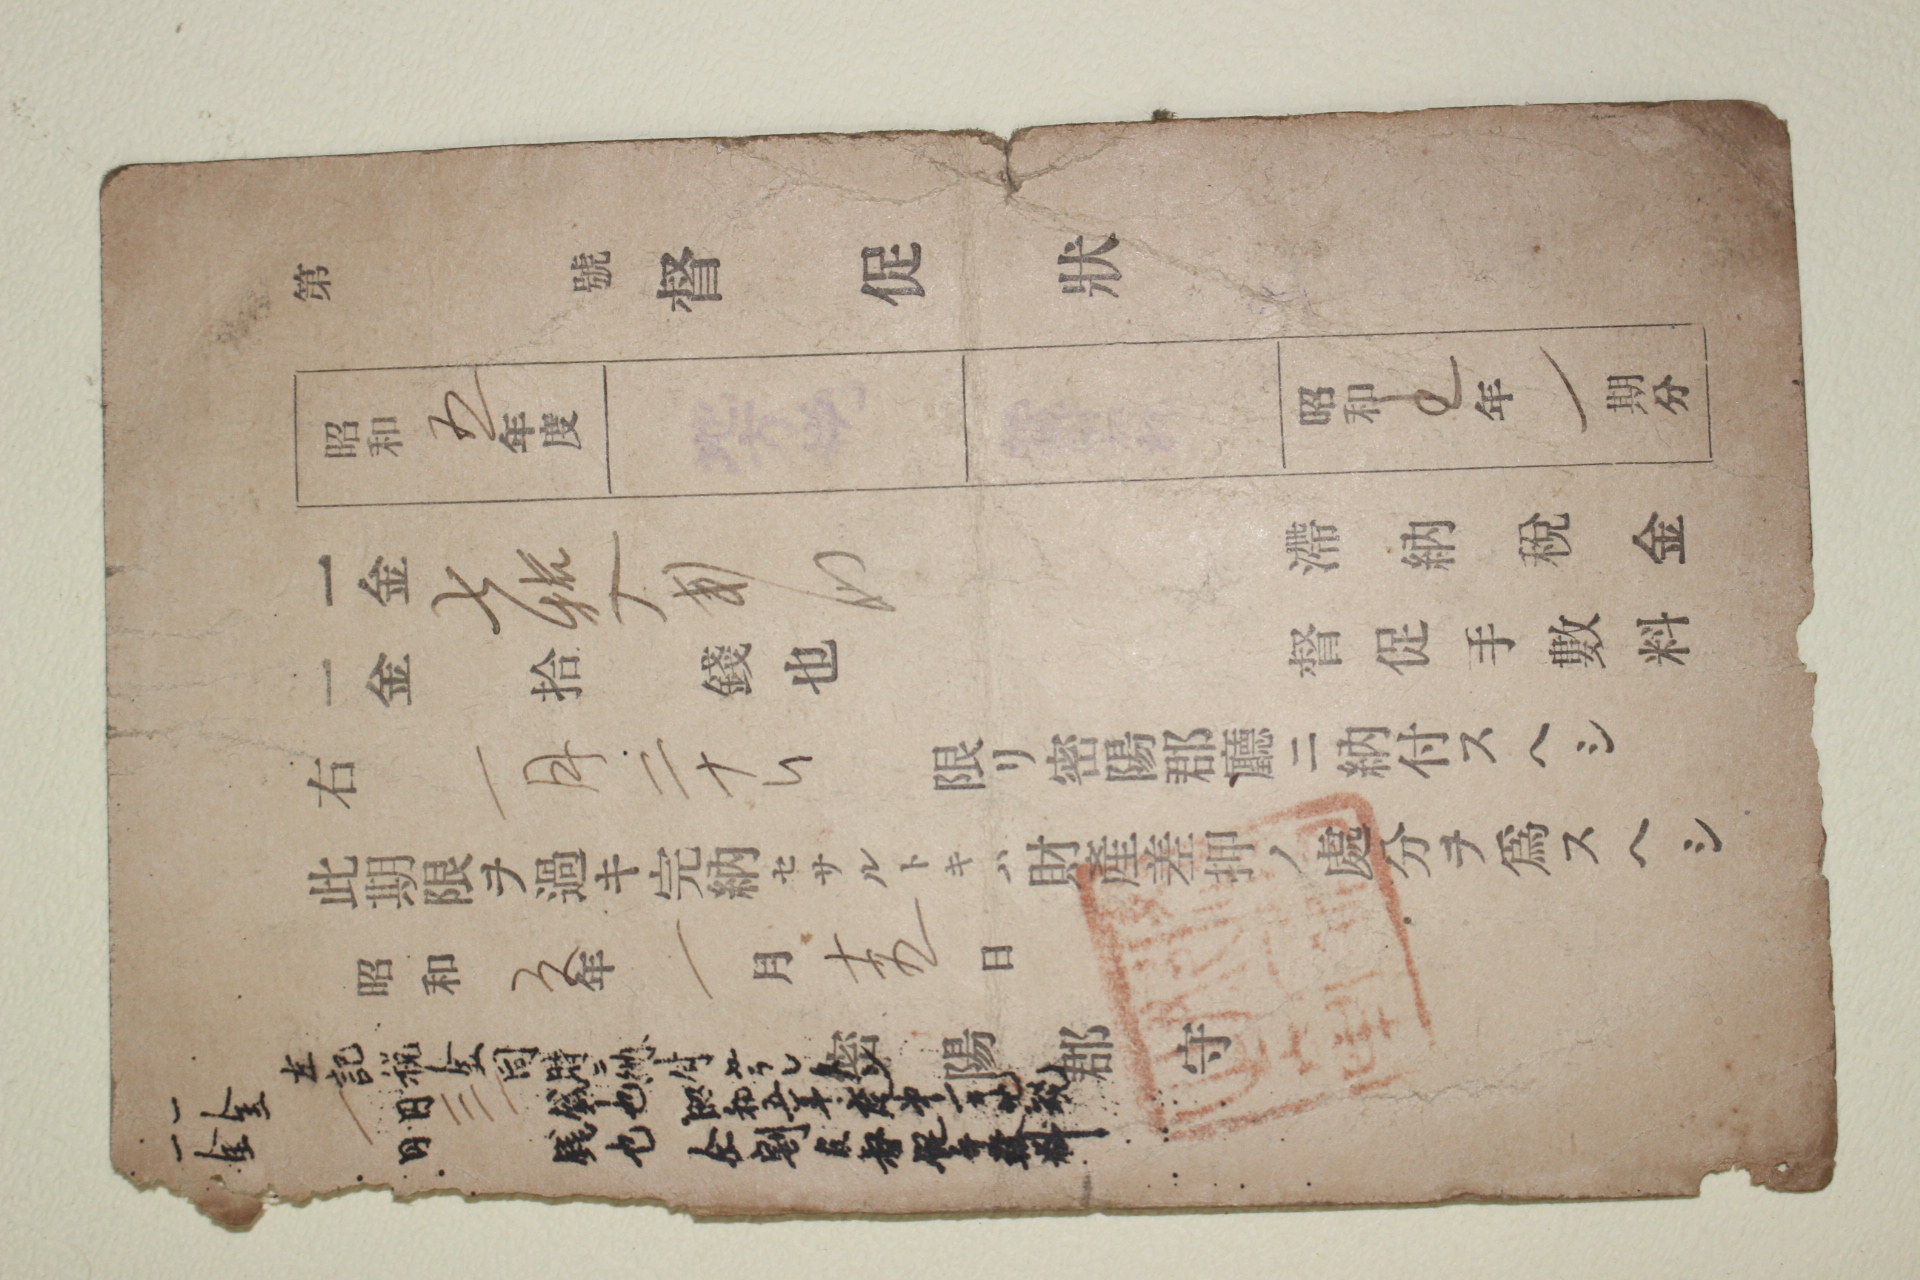 第 號 督促狀
昭和五年度 地方稅 昭和 年 期分
一金七拾 滯納稅金
一金拾錢也 督促手數料
右一月二十 限リ密陽郡廳ニ納付スヘシ
此期限ヲ過キ完納セサルトキハ財產差押ノ處分ヲ爲スヘシ
昭和 年一月十五日
密陽郡守
左記税金同時ニ納付
一金 円三 錢也 昭和五年度第一期 税
一金 円 錢也 仝割 督促手數料